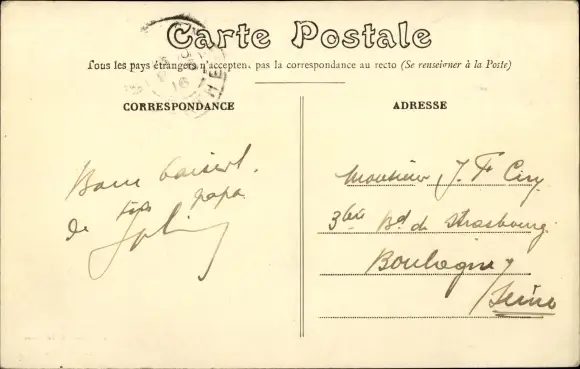 Carte Postale
Tous les pays étrangers n'acceptent pas la correspondance au recto (Se renseigner à la Poste)
CORRESPONDANCE
ADRESSE
Bons baisers
de papa
Monsieur J. F.
3 bis Bd de Strasbourg
Boulogne
Seine